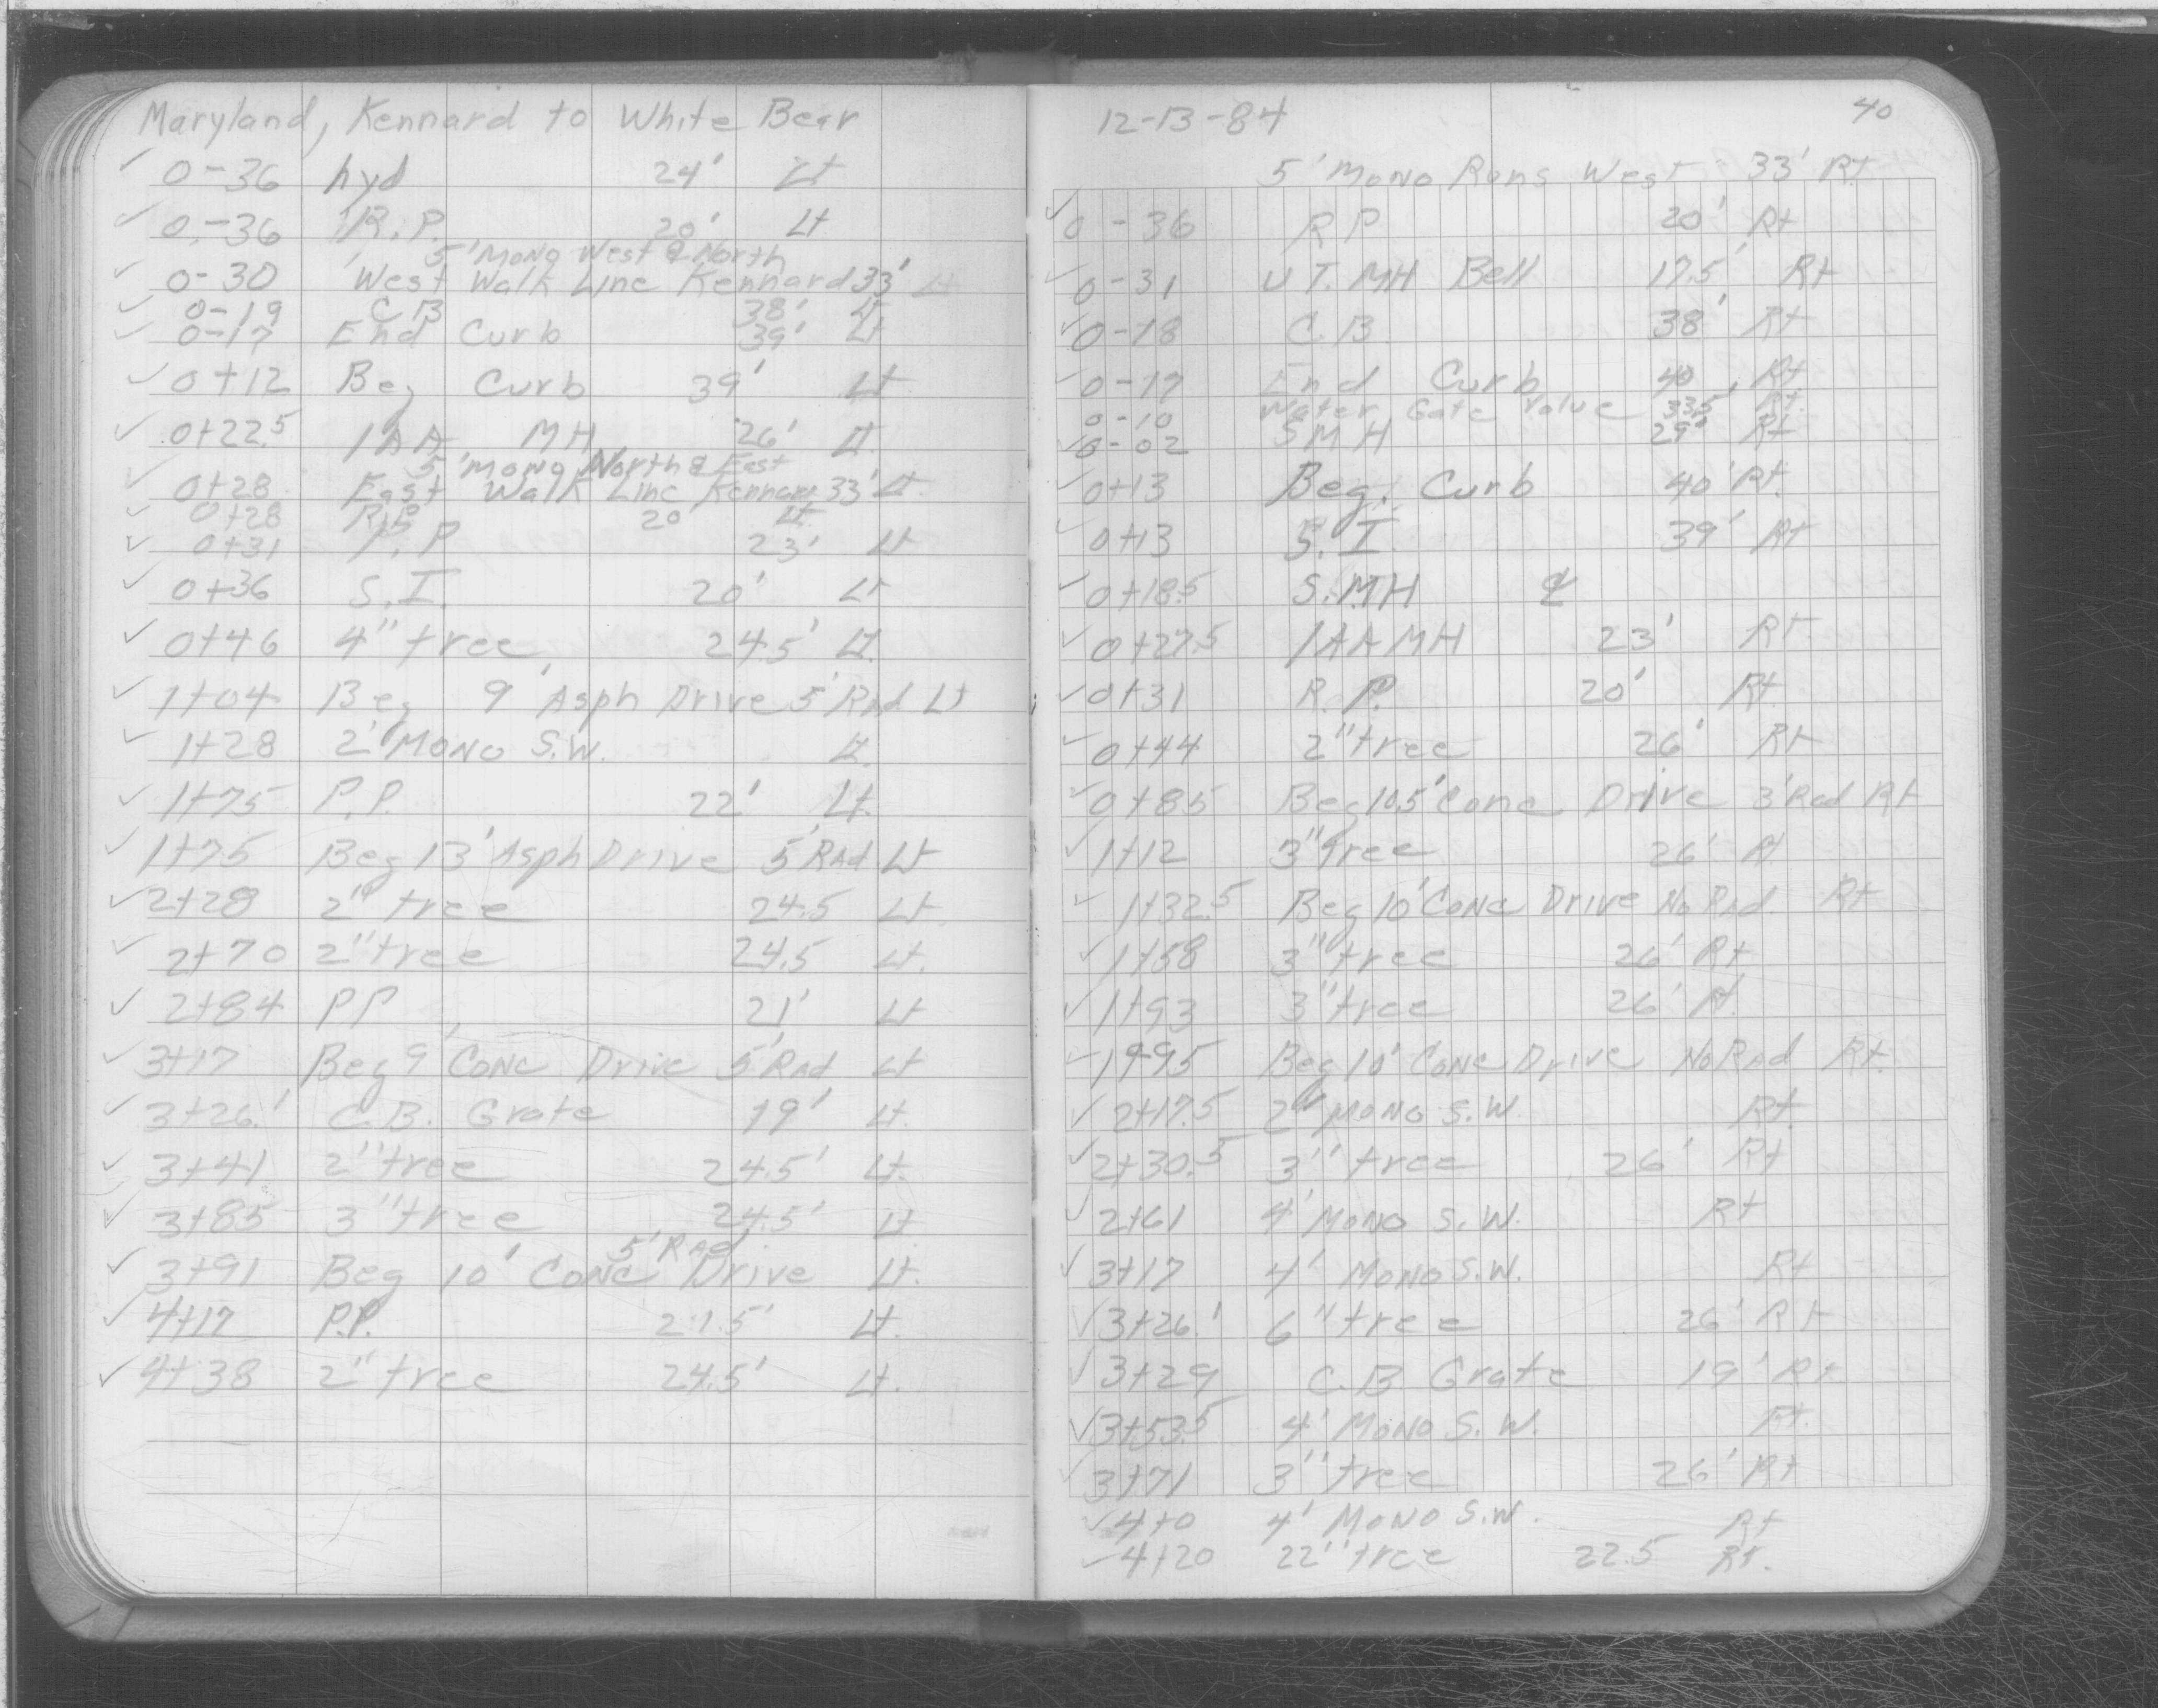 Maryland, Kennard to White Bear
0-36 hyd 24' Lt
0-36 R.P. 20' Lt
5' Mono West & North
0-30 West Walk Line Kennard 33' Lt
0-19 C B 38' Lt
0-17 End Curb 39' Lt
0+12 Beg Curb 39' Lt
0+22.5 MH 26' Lt.
5' mono North & East
0+28 East Walk Line Kennard 33' Lt.
0+28 R.P. 20 Lt.
0+31 P.P 23' Lt
0+36 S.I. 20' Lt
0+46 4" tree 24.5' Lt.
1+04 Beg 9' Asph Drive 5' Rad Lt
1+28 2' MONO S.W. Lt.
1+75 P.P. 22' Lt.
1+75 Beg 13' Asph Drive 5' RAd Lt
2+28 2" tree 24.5 Lt.
2+70 2" tree 24.5 Lt.
2+84 PP 21' Lt
3+17 Beg 9' Conc Drive 5' Rad Lt
3+26' C.B. Grate 19' Lt.
3+41 2" tree 24.5' Lt.
3+85 3" tree 24.5' Lt.
5' Rad
3+91 Beg 10' Conc Drive Lt.
4+17 P.P. 21.5' Lt.
4+38 2" tree 24.5' Lt.
12-13-84 40
5' Mono Runs West 33' Rt
0-36 R P 20' Rt
0-31 U T. MH Bell 17.5' Rt
0-18 C.B. 38' Rt
0-17 End Curb 40' Rt.
0-10 Water Gate Valve 33.5 Rt.
0-02 S M H 29' Rt
0+13 Beg. Curb 40' Rt.
0+13 S.I. 39' Rt
0+18.5 S.MH ℄
0+27.5 MH 23' Rt.
0+31 R.P. 20' Rt.
0+44 2" tree 26' Rt
0+85 Beg 10.5' Conc Drive 3' Rad Rt
1+12 3" tree 26' Rt
1+32.5 Beg 10' Conc Drive No Rad. Rt
1+58 3" tree 26' Rt
1+93 3" tree 26' Rt.
1+95 Beg 10' Conc Drive No Rad Rt.
2+17.5 2' MONO S.W. Rt.
2+30.5 3" tree 26' Rt
2+61 4' MONO S.W. Rt
3+17 4' MONO S.W. Rt
3+26' 6" tree 26' Rt
3+29 C.B. Grate 19' Rt
3+53.5 4' MONO S.W. Rt.
3+71 3" tree 26' Rt
4+0 4' MONO S.W. Rt
4+20 22" tree 22.5 Rt.